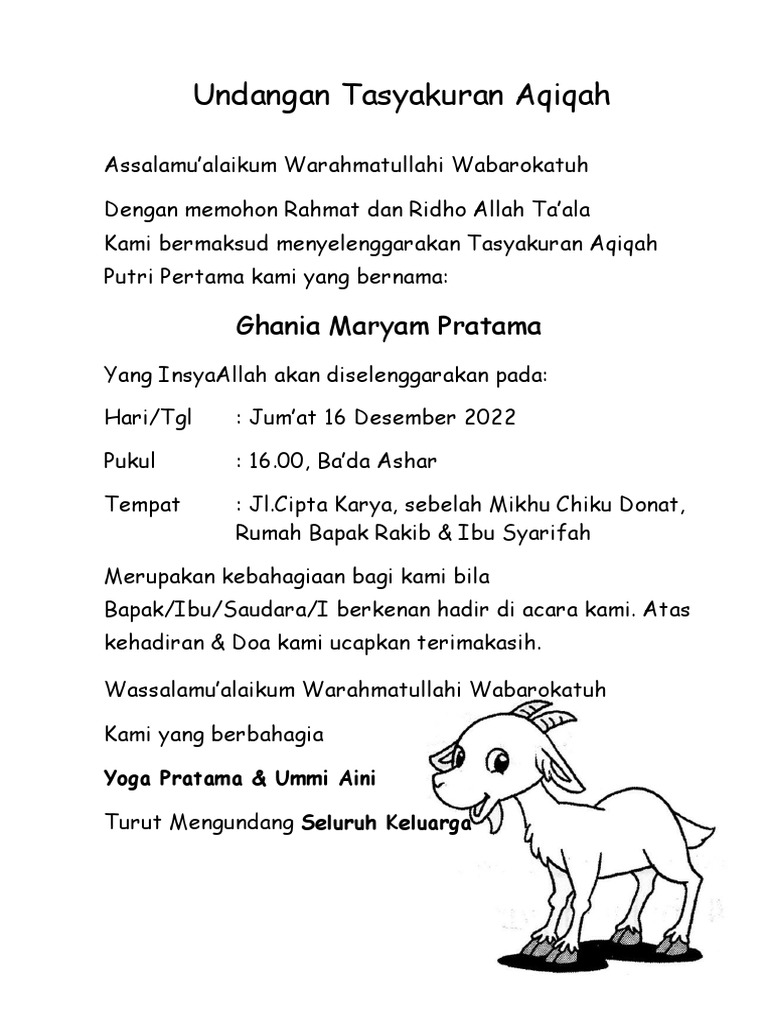 Undangan Tasyakuran Aqiqah
Assalamu’alaikum Warahmatullahi Wabarokatuh
Dengan memohon Rahmat dan Ridho Allah Ta’ala
Kami bermaksud menyelenggarakan Tasyakuran Aqiqah
Putri Pertama kami yang bernama:
Ghania Maryam Pratama
Yang InsyaAllah akan diselenggarakan pada:
Hari/Tgl : Jum’at 16 Desember 2022
Pukul : 16.00, Ba’da Ashar
Tempat : Jl.Cipta Karya, sebelah Mikhu Chiku Donat,
Rumah Bapak Rakib & Ibu Syarifah
Merupakan kebahagiaan bagi kami bila
Bapak/Ibu/Saudara/I berkenan hadir di acara kami. Atas
kehadiran & Doa kami ucapkan terimakasih.
Wassalamu’alaikum Warahmatullahi Wabarokatuh
Kami yang berbahagia
Yoga Pratama & Ummi Aini
Turut Mengundang Seluruh Keluarga